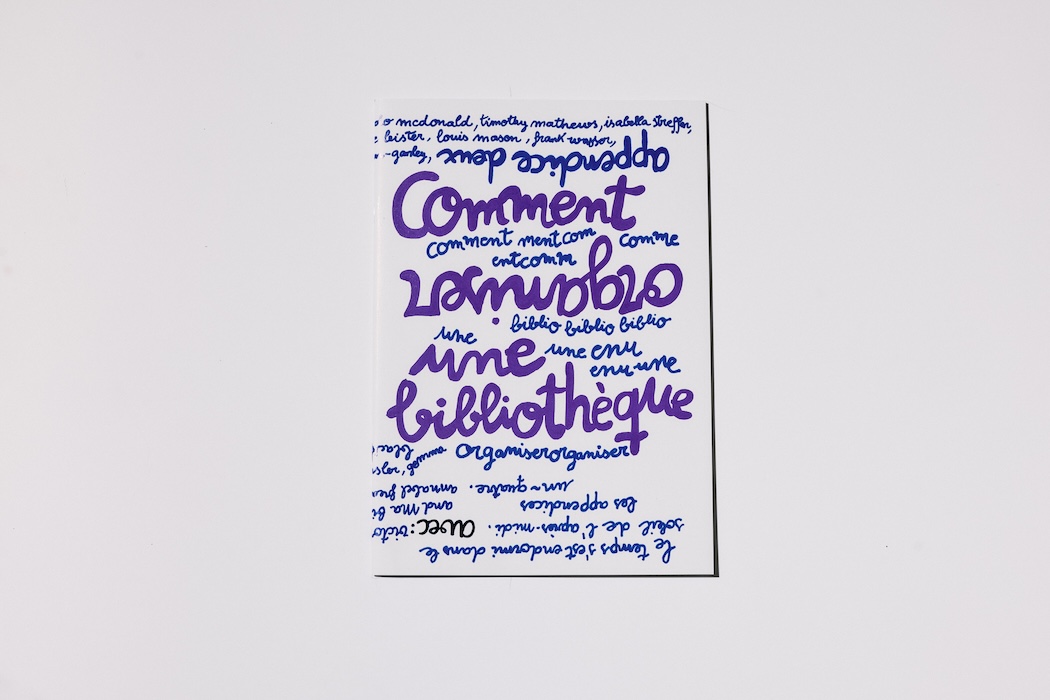 mcdonald, timothy mathews, isabella streffen,
leister, louis mason, frank wasser,
appendice deux
Comment
comment mentcom comme
entcomm
organiser
biblio biblio biblio
une
une une enu
enu-une
bibliothèque
organiserorganiser
gemma
un-quatre.
annabel
les appendices
and Ma
soleil de l'après-midi.
avec:
le temps s'est endormi dans le